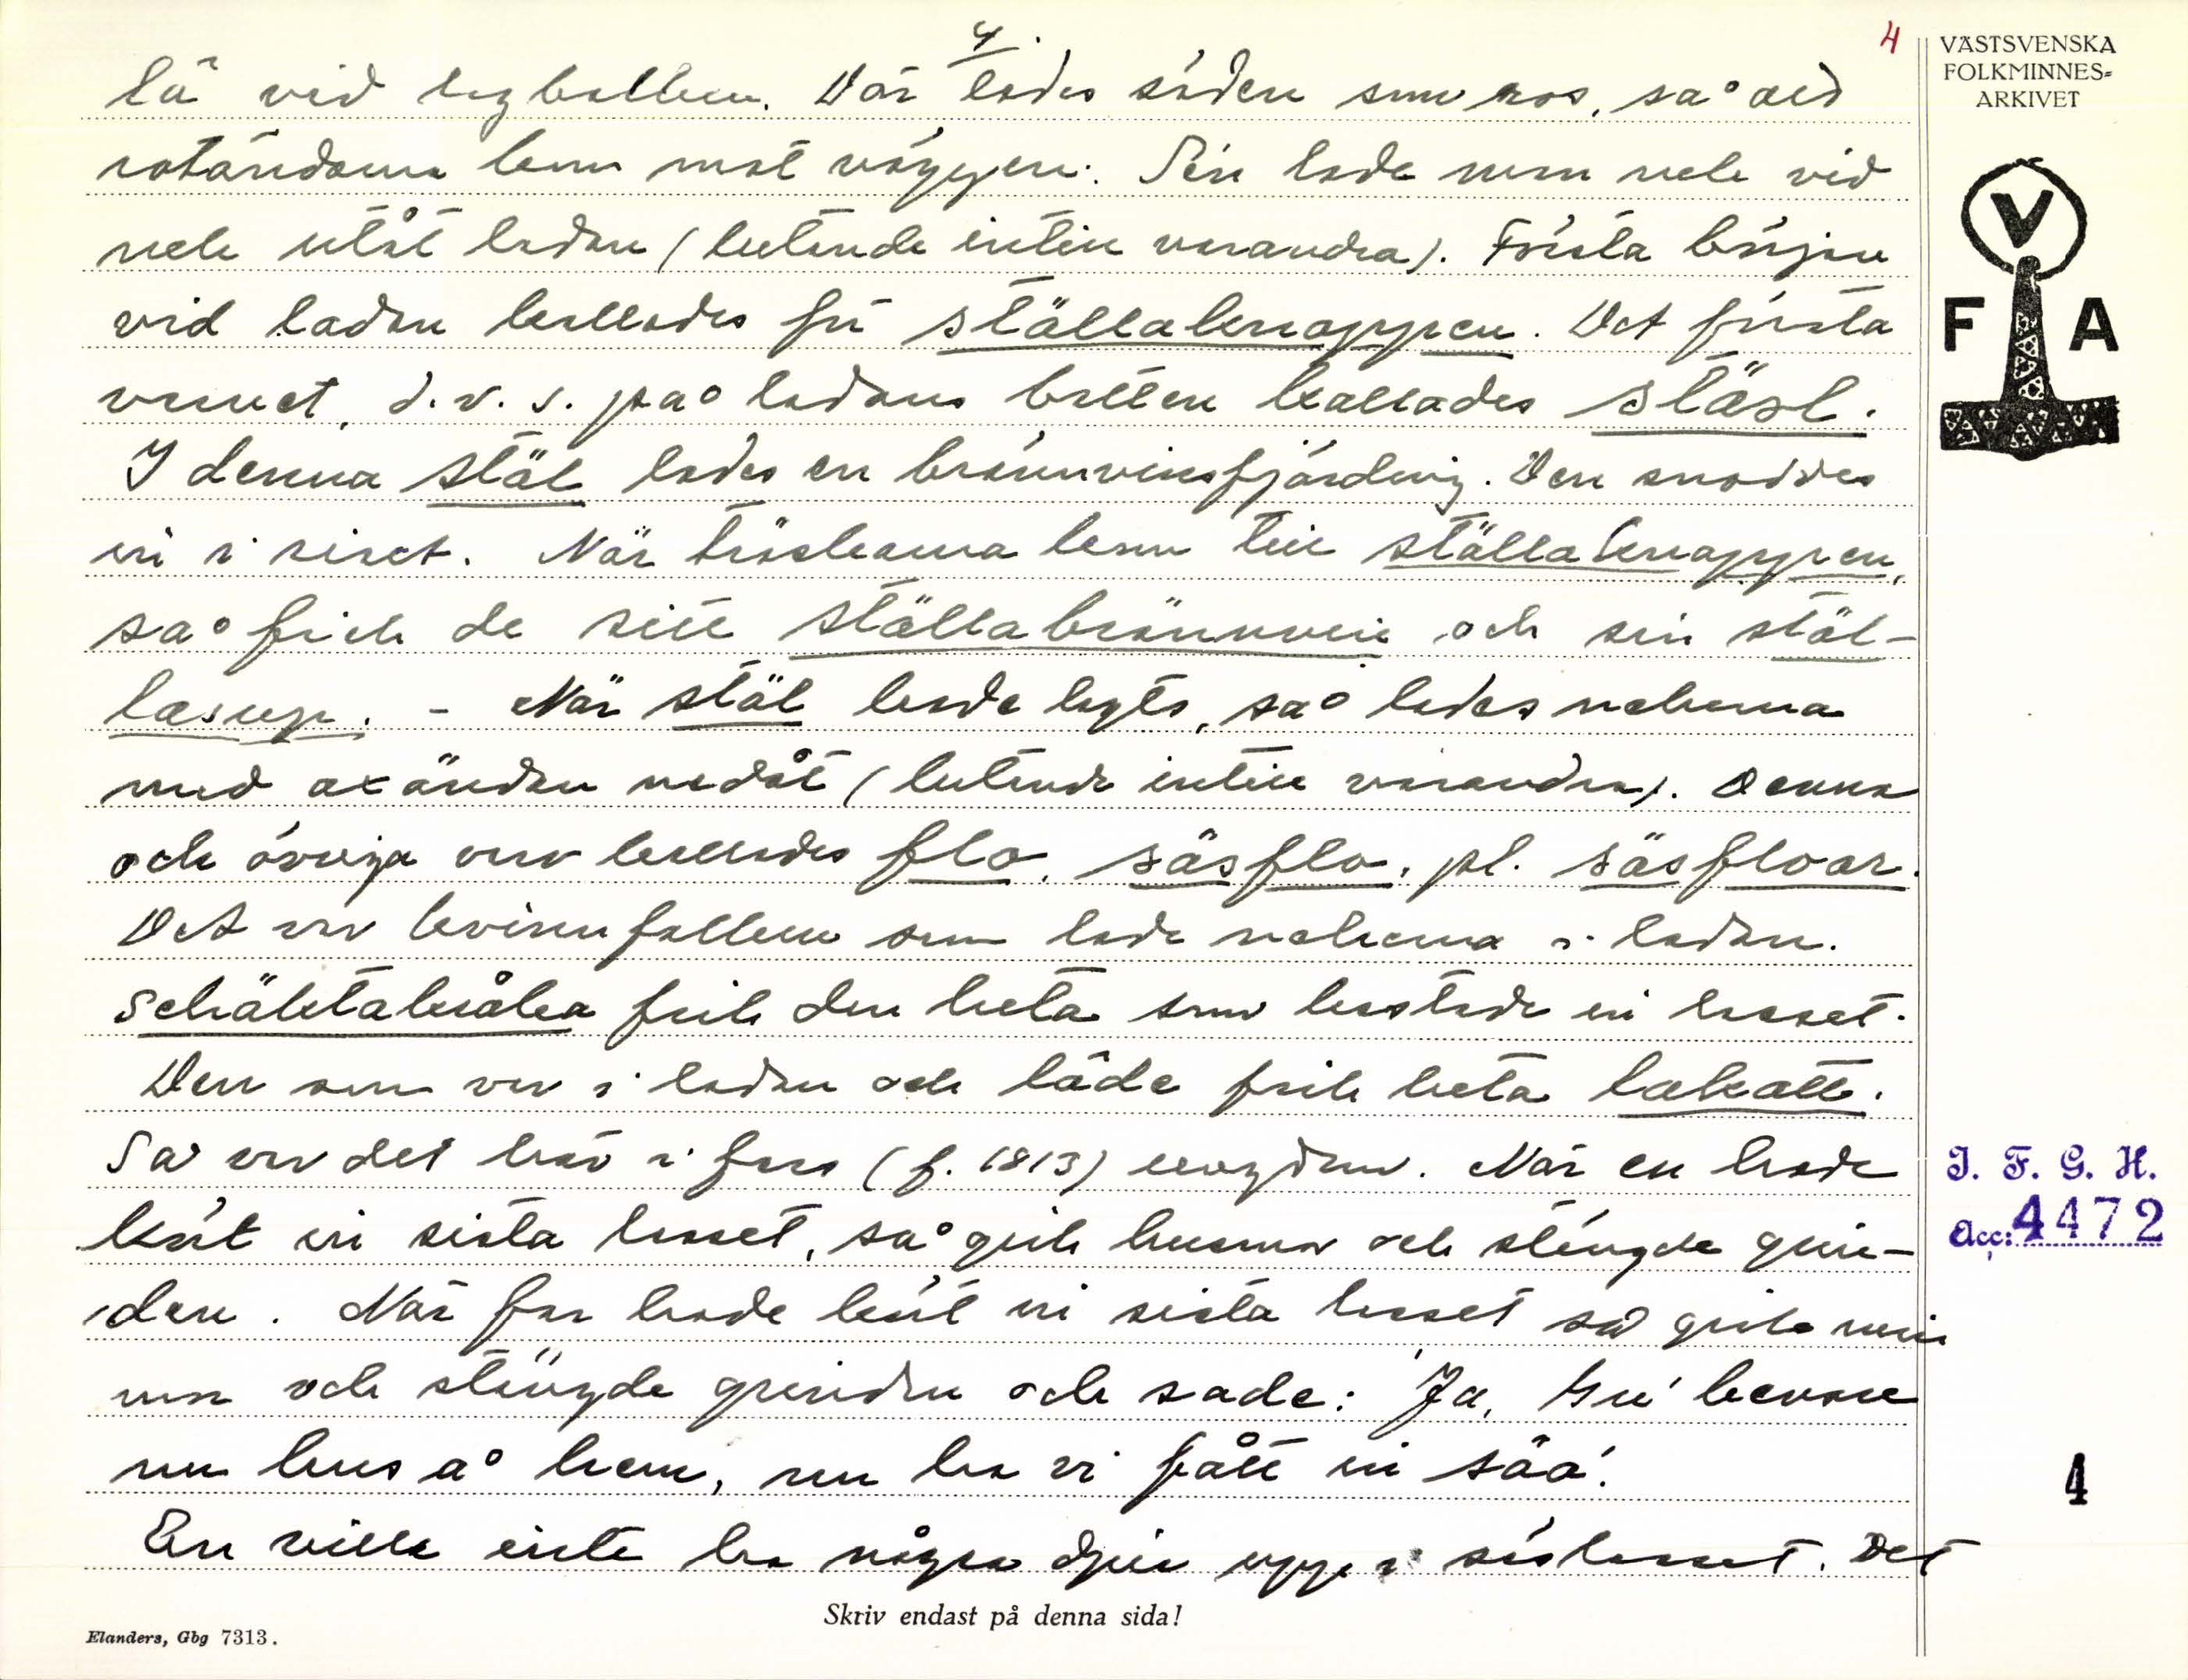 4.
4
VÄSTSVENSKA
FOLKMINNES=
ARKIVET
V
F A
lä vid Där lades säden som så att
rotändarna kom mot väggen. Sen lade man nek vid
nek utåt ladan (lutande intill varandra). Första början
vid ladan kallades för ställaknappen. Det första
varvet, d.v.s. på ladans botten kallades stäsl.
I denna stäl lades en brännvinsfjärding. Den snoddes
in i riset. När tröskarna kom till ställaknappen,
så fick de sitt ställabrännvin och sin stäl-
läsupp. - När stäl hade lagts, så lades nekerna
med axändan nedåt (lutande intill varandra). Denna
och övriga varv kallades flo, säsflo, pl. säsfloar.
Det var kvinnfolken som lade nekerna i ladan.
schäktakråka fick den heta som kastade in lasset.
Den som var i ladan och läde fick heta läkatt.
Så var det bråv i fars (f. 1813) ungdom. När en hade
kört in sista lasset, så gick husmor och stängde grin-
den. När far hade kört in sista lasset så gick min
mor och stängde grinden och sade: 'Ja, Gu' bevare
nu hus å hem, nu ha vi fått in säa'.
En ville inte ha några djur uppe i sislasset. Det
J. F. G. H.
Acc: 4472
4
Skriv endast på denna sida!
Elanders, Gbg 7313.